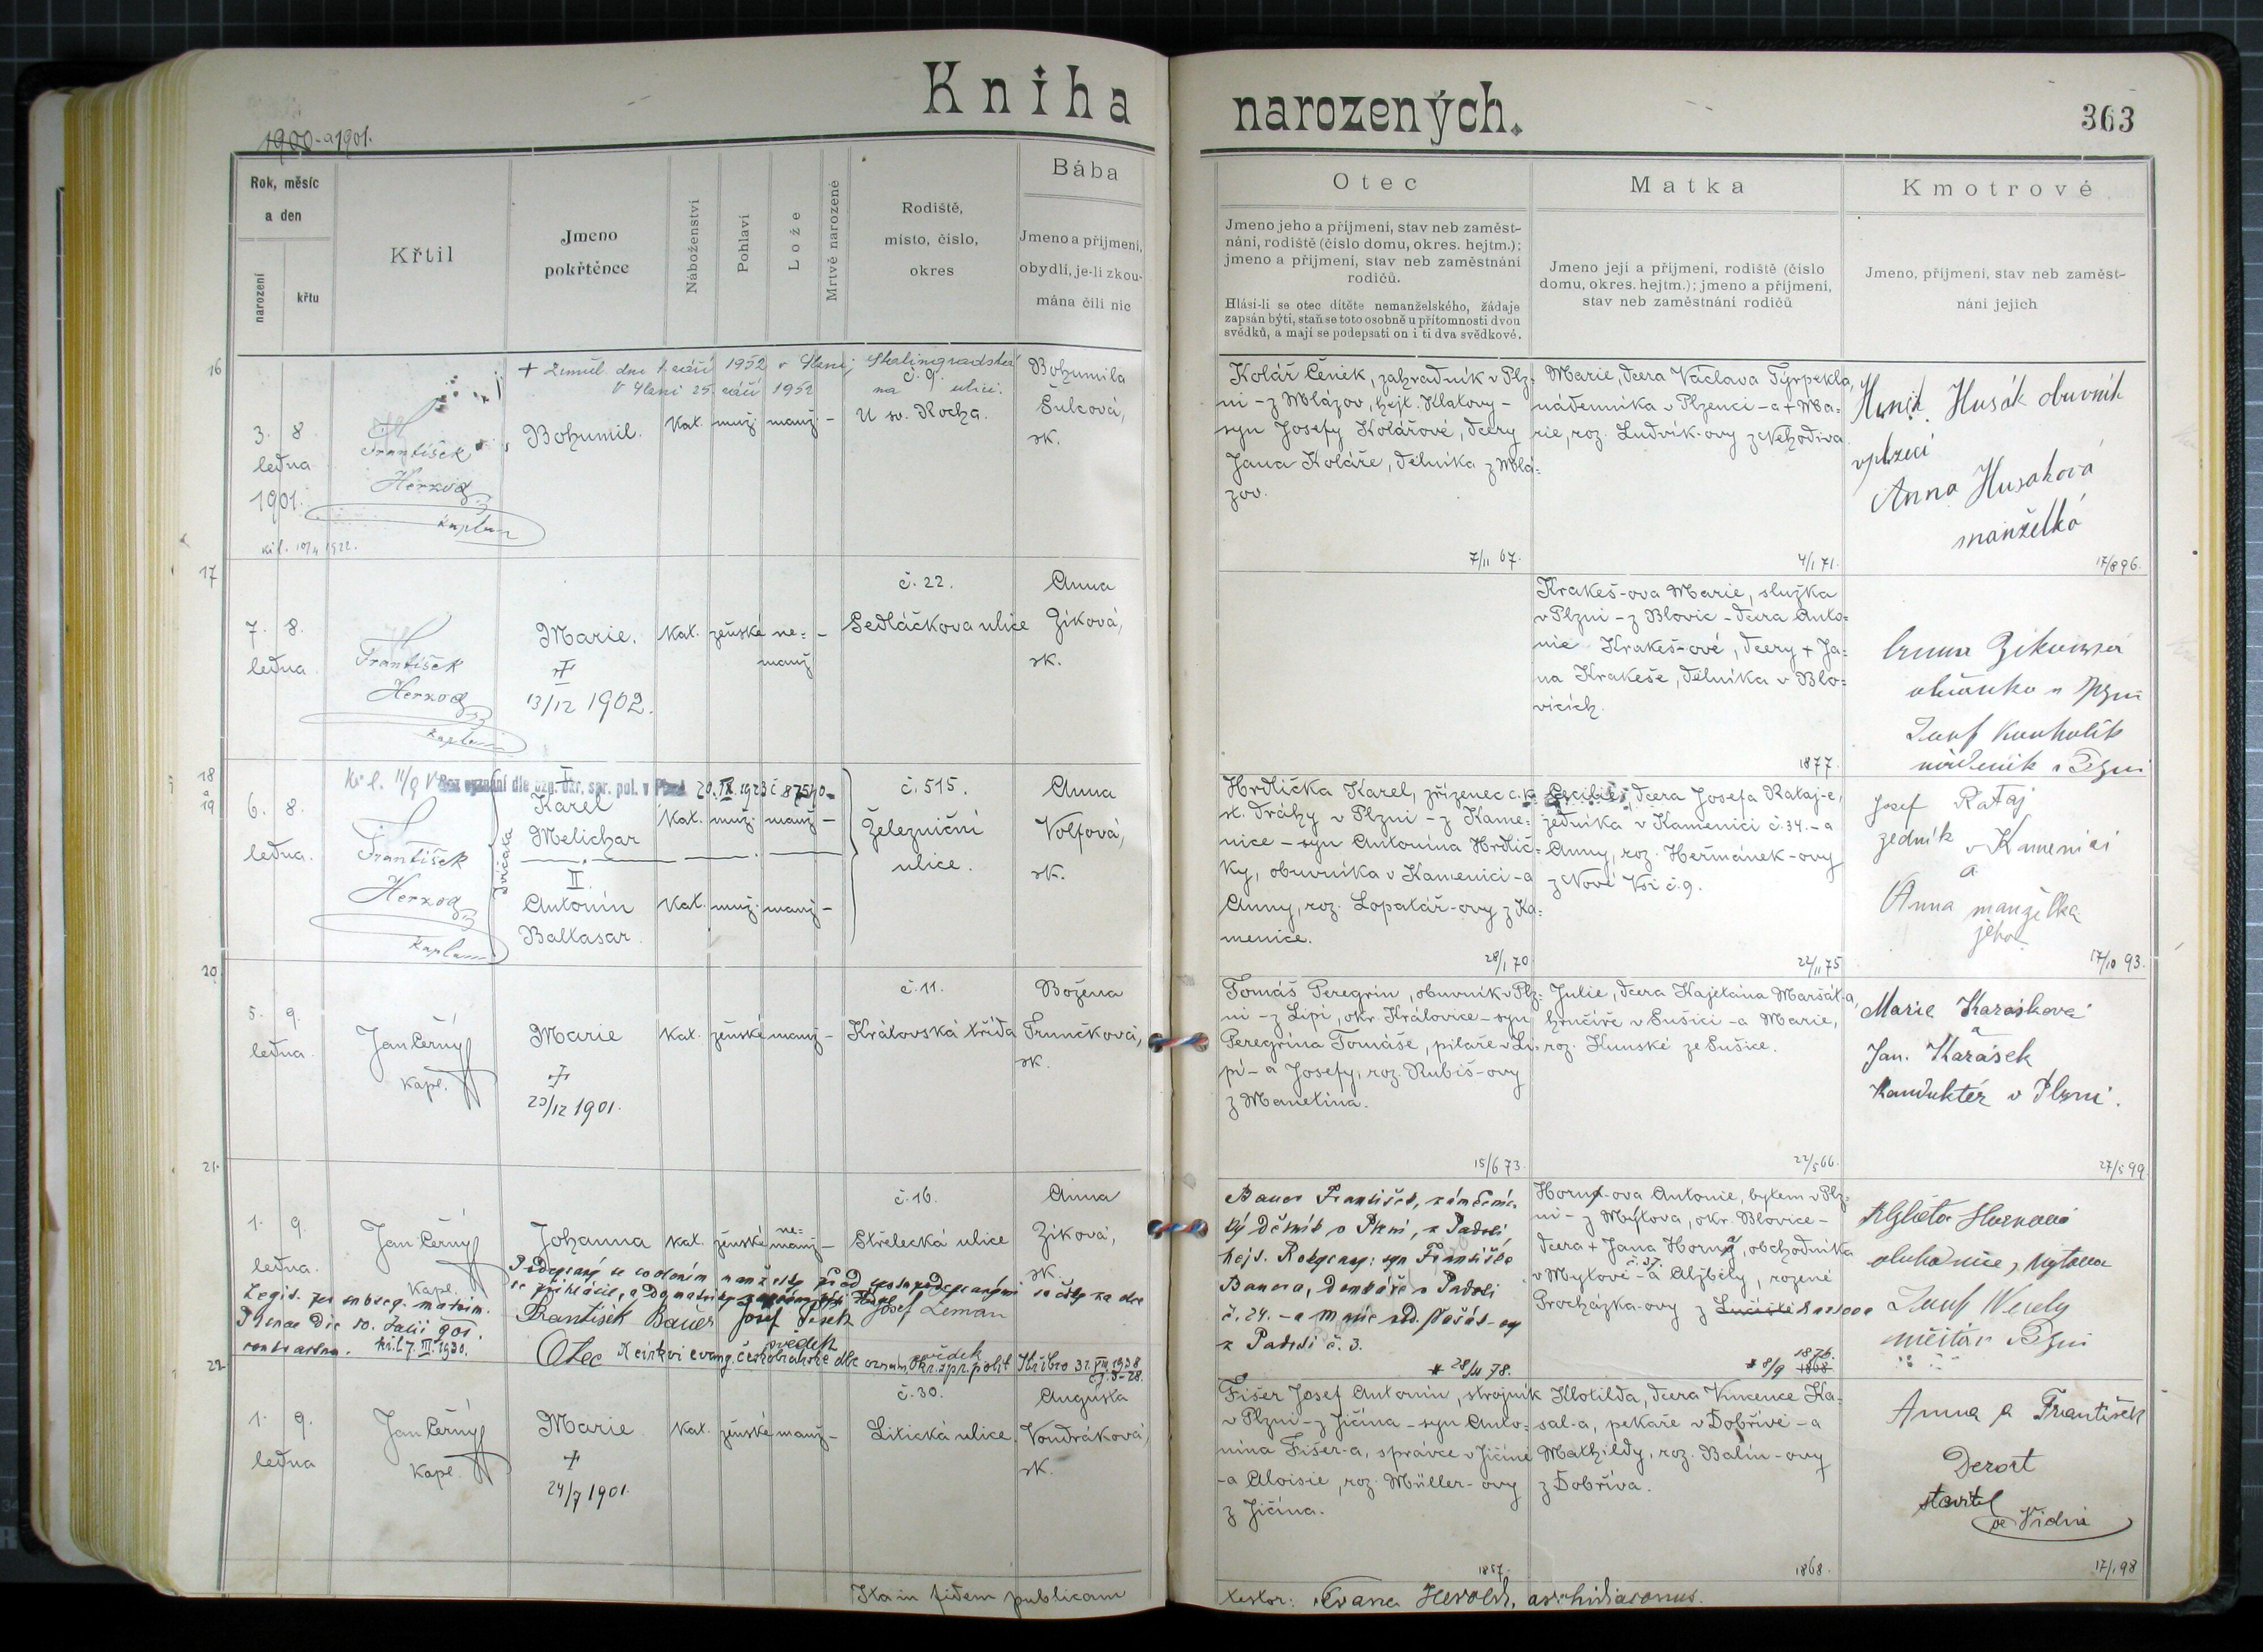 Kniha narozených.
363
1900-a1901.
Rok, měsíc
a den
narození
křtu
Křtil
Jmeno
pokřtěnce
Náboženství
Pohlaví
Lože
Mrtvě narozené
Rodiště,
místo, číslo,
okres
Bába
Jmeno a příjmení,
obydlí, je-li zkou-
mána čili nic
Otec
Jmeno jeho a příjmení, stav neb zaměst-
nání, rodiště (číslo domu, okres. hejtm.);
jmeno a příjmení, stav neb zaměstnání
rodičů.
Hlásí-li se otec dítěte nemanželského, žádaje
zapsán býti, staň se toto osobně u přítomnosti dvou
svědků, a mají se podepsati on i ti dva svědkové.
Matka
Jmeno její a příjmení, rodiště (číslo
domu, okres. hejtm.); jmeno a příjmení,
stav neb zaměstnání rodičů
Kmotrové
Jmeno, příjmení, stav neb zaměst-
nání jejich
16
3. 8
ledna
1901.
František
Herzog
kaplan
+ Zemřel dne 1. září 1952 v Plzni, Stalingradská
č. 9.
V Plzni 25. září 1952
na ulici.
Bohumil.
Kat. muž. manž. -
U sv. Rocha.
Bohumila
Šulcová,
zk.
Kolář Čeněk, zahradník v Plz-
ni - z Mlázov, hejt. Klatovy -
syn Josefy Kolářové, dcery
Jana Koláře, dělníka z Mlá-
zov.
7/11 67.
Marie, dcera Václava Tyrpekla,
nádenníka v Plzenci - a + Ma-
rie, roz. Ludvík-ovy z Nehodiva.
4/1 71.
Husák obuvník
Anna Husaková
manželka
17/8 96.
17
7. 8.
ledna
František
Herzog
kaplan
Marie.
+
13/12 1902.
Kat. ženské ne-
manž. -
č. 22.
Sedláčkova ulice
Anna
Zíková,
zk.
Krakeš-ova Marie, služka
v Plzni - z Blovic - dcera Anto-
nie Krakeš-ové, dcery + Ja-
na Krakeše, dělníka v Blo-
vicích.
1877.
18
a
19
6. 8.
ledna.
František
Herzog
kaplan
Bez vyznání dle ozn. okr. spr. pol. v Plzni 20. IX. 1923 č 87540
dvojčata
I.
Karel
Melichar
Kat. muž. manž. -
II.
Antonín
Baltasar.
Kat. muž. manž. -
č. 515.
Železniční
ulice.
Anna
Volfová,
zk.
Hrdlička Karel, zřízenec c.k.
st. dráhy v Plzni - z Kame-
nice - syn Antonína Hrdlič-
ky, obuvníka v Kamenici - a
Anny, roz. Lopatář-ovy z Ka-
menice.
28/1 70
Cecilie, dcera Josefa Rataj-e,
zedníka v Kamenici č. 34. - a
Anny, roz. Heřmánek-ovy
z Nové Vsi č. 9.
22/11 75
Josef Rataj
zedník v Kamenici
a
Anna manželka
jeho
17/10 93.
20.
5. 9.
ledna.
Jan Černý
kapl.
Marie
+
23/12 1901.
Kat. ženské manž. -
č. 11.
Královská třída
Božena
Trunčková,
zk.
Tomáš Peregrin, obuvník v Plz-
ni - z Lipí, okr. Kralovice - syn
Peregrina Tomáše, pilaře v Li-
pí - a Josefy, roz. Rubiš-ovy
z Manetína.
15/6 73.
Julie, dcera Kajetána Maršál-a,
hrnčíře v Sušici - a Marie,
roz. Kunské ze Sušice.
22/5 66.
Marie Karásková
a
Jan. Karásek
konduktér v Plzni.
27/5 99
21.
1. 9.
ledna.
Jan Černý
kapl.
Johanna
Kat. ženské ne-
manž. -
č. 16.
Střelecká ulice
Anna
Zíková,
zk.
Legit. per subseq. matrim.
Pilsnae die 10. Julii 901.
contractum. 7. III. 1930.
František Bauer Josef Pešek Josef Zeman
Otec svědek svědek
Bauer František, zámečnic-
ký dělník v Plzni, z Padrti,
hejt. Rokycany: syn Františka
Bauera, v Padrti
č. 24. - a Marie
z Padrti č. 3.
* 28/11 78.
Horný-ova Antonie, bytem v Plz-
ni - z Mýtova, okr. Blovice -
dcera + Jana Horný, obchodníka
v Mýtově - a Alžběty, rozené
Procházka-ovy z
* 8/9 1876. 1868
Josef Veselý
22.
1. 9.
ledna
Jan Černý
kapl.
Marie
+
24/7 1901.
Kat. ženské manž. -
č. 30.
Litická ulice.
Augusta
Voudráková,
zk.
Fišer Josef Antonín, strojník
v Plzni - z Jičína - syn Anto-
nína Fišer-a, správce v Jičíně
- a Aloisie, roz. Müller-ovy
z Jičína.
1857.
Klotilda, dcera Vincence Ka-
sal-a, pekaře v Dobřívě - a
Mathildy, roz. Balín-ovy
z Dobříva.
1868.
Anna a František
Derort
stavitel
ve Vídni
17/1 98
Ita in fidem publicam
testor: Franc Herold, archidiaconus.